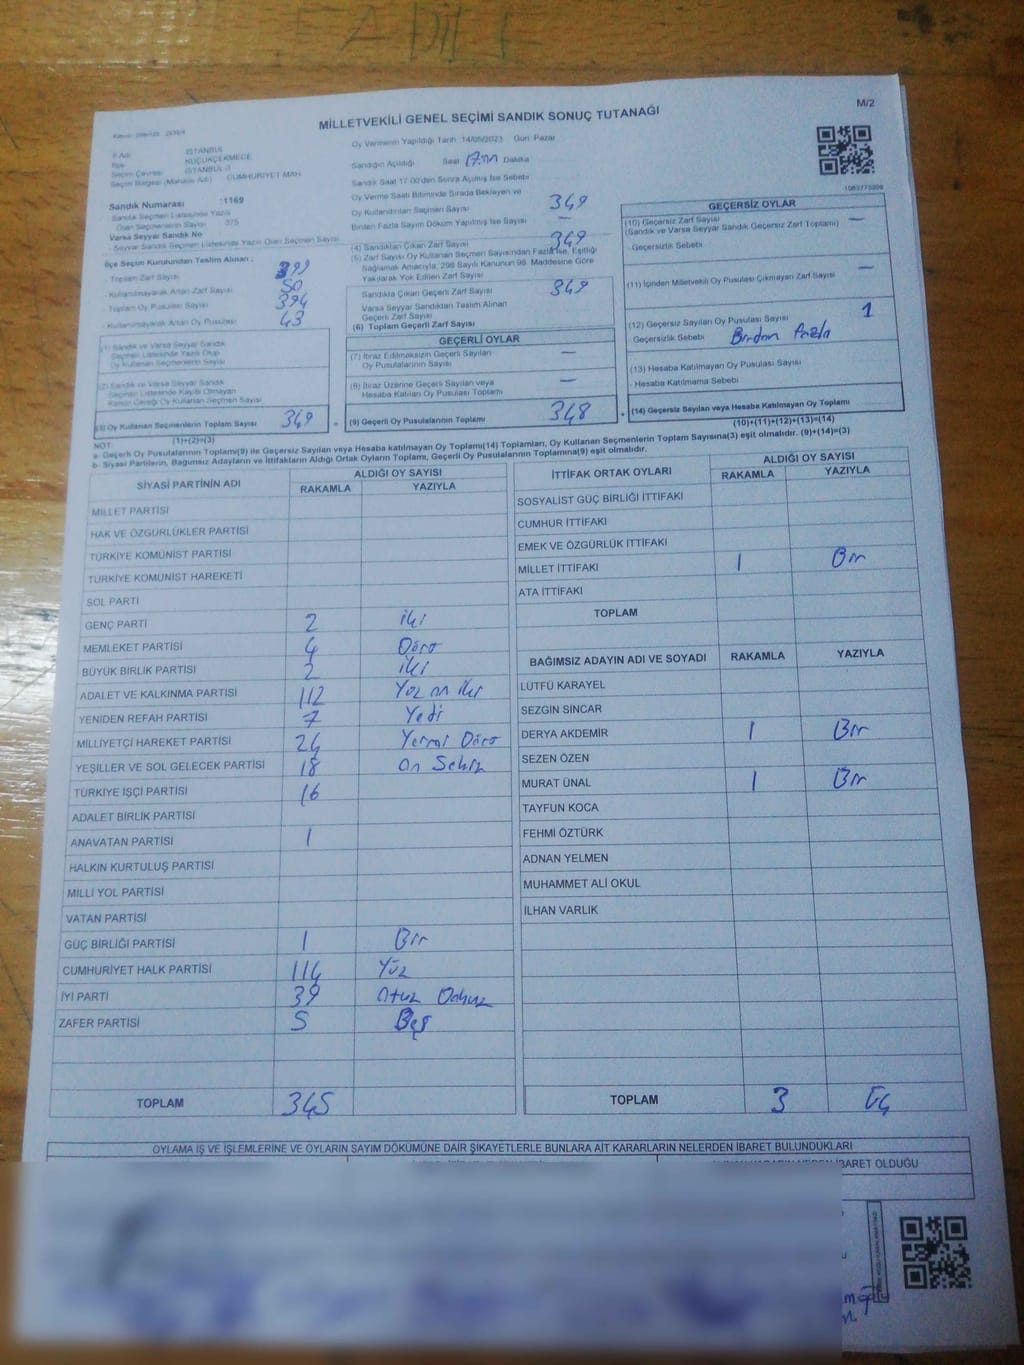 M/2
MİLLETVEKİLİ GENEL SEÇİMİ SANDIK SONUÇ TUTANAĞI
İl Adı İSTANBUL
İlçe KÜÇÜKÇEKMECE
Seçim Çevresi İSTANBUL-3
Seçim Bölgesi (Mahalle Adı) CUMHURİYET MAH.
Sandık Numarası :1169
Sandık Seçmen Listesinde Yazılı
Olan Seçmenlerin Sayısı 375
Varsa Seyyar Sandık No
- Seyyar Sandık Seçmen Listesinde Yazılı Olan Seçmen Sayısı
İlçe Seçim Kurulundan Teslim Alınan :
- Toplam Zarf Sayısı 399
- Kullanılmayarak Artan Zarf Sayısı 50
Toplam Oy Pusulası Sayısı 394
- Kullanılmayarak Artan Oy Pusulası 43
(1) Sandık ve Varsa Seyyar Sandık
Seçmen Listesinde Yazılı Olup
Oy Kullanan Seçmenlerin Sayısı
(2) Sandık ve Varsa Seyyar Sandık
Seçmen Listesinde Kayıtlı Olmayan
Kanun Gereği Oy Kullanan Seçmen Sayısı
(3) Oy Kullanan Seçmenlerin Toplam Sayısı 349
(1)+(2)=(3)
Oy Vermenin Yapıldığı Tarih :14/05/2023 Gün: Pazar
Sandığın Açıldığı Saat 17:00 Dakika
Sandık Saat 17:00'den Sonra Açılmış İse Sebebi
Oy Verme Saati Bitiminde Sırada Bekleyen ve
Oy Kullandırılan Seçmen Sayısı 349
Birden Fazla Sayım Döküm Yapılmış İse Sayısı —
(4) Sandıktan Çıkan Zarf Sayısı 349
(5) Zarf Sayısı Oy Kullanan Seçmen Sayısından Fazla İse, Eşitliği
Sağlamak Amacıyla, 298 Sayılı Kanunun 98. Maddesine Göre
Yakılarak Yok Edilen Zarf Sayısı
Sandıkta Çıkan Geçerli Zarf Sayısı 349
Varsa Seyyar Sandıktan Teslim Alınan
Geçerli Zarf Sayısı
(6) Toplam Geçerli Zarf Sayısı
GEÇERLİ OYLAR
(7) İtiraz Edilmeksizin Geçerli Sayılan
Oy Pusulalarının Sayısı —
(8) İtiraz Üzerine Geçerli Sayılan veya
Hesaba Katılan Oy Pusulası Toplamı —
(9) Geçerli Oy Pusulalarının Toplamı 348
GEÇERSİZ OYLAR
(10) Geçersiz Zarf Sayısı —
(Sandık ve Varsa Seyyar Sandık Geçersiz Zarf Toplamı)
- Geçersizlik Sebebi
(11) İçinden Milletvekili Oy Pusulası Çıkmayan Zarf Sayısı —
(12) Geçersiz Sayılan Oy Pusulası Sayısı 1
Geçersizlik Sebebi Birden Fazla
(13) Hesaba Katılmayan Oy Pusulası Sayısı
- Hesaba Katılmama Sebebi
(14) Geçersiz Sayılan veya Hesaba Katılmayan Oy Toplamı
(10)+(11)+(12)+(13)=(14)
NOT:
a- Geçerli Oy Pusulasının Toplamı(9) ile Geçersiz Sayılan veya Hesaba katılmayan Oy Toplamı(14) Toplamları, Oy Kullanan Seçmenlerin Toplam Sayısına(3) eşit olmalıdır. (9)+(14)=(3)
b- Siyasi Partilerin, Bağımsız Adayların ve İttifakların Aldığı Ortak Oyların Toplamı, Geçerli Oy Pusulalarının Toplamına(9) eşit olmalıdır.
SİYASİ PARTİNİN ADI ALDIĞI OY SAYISI
RAKAMLA YAZIYLA
MİLLET PARTİSİ
HAK VE ÖZGÜRLÜKLER PARTİSİ
TÜRKİYE KOMÜNİST PARTİSİ
TÜRKİYE KOMÜNİST HAREKETİ
SOL PARTİ
GENÇ PARTİ 2 iki
MEMLEKET PARTİSİ 4 Dört
BÜYÜK BİRLİK PARTİSİ 2 iki
ADALET VE KALKINMA PARTİSİ 112 Yüz on iki
YENİDEN REFAH PARTİSİ 7 Yedi
MİLLİYETÇİ HAREKET PARTİSİ 24 Yirmi Dört
YEŞİLLER VE SOL GELECEK PARTİSİ 18 on Sekiz
TÜRKİYE İŞÇİ PARTİSİ 16
ADALET BİRLİK PARTİSİ
ANAVATAN PARTİSİ 1
HALKIN KURTULUŞ PARTİSİ
MİLLİ YOL PARTİSİ
VATAN PARTİSİ
GÜÇ BİRLİĞİ PARTİSİ 1 Bir
CUMHURİYET HALK PARTİSİ 114 Yüz
İYİ PARTİ 39 Otuz Dokuz
ZAFER PARTİSİ 5 Beş
TOPLAM 345
İTTİFAK ORTAK OYLARI ALDIĞI OY SAYISI
RAKAMLA YAZIYLA
SOSYALİST GÜÇ BİRLİĞİ İTTİFAKI
CUMHUR İTTİFAKI
EMEK VE ÖZGÜRLÜK İTTİFAKI
MİLLET İTTİFAKI 1 Bir
ATA İTTİFAKI
TOPLAM
BAĞIMSIZ ADAYIN ADI VE SOYADI RAKAMLA YAZIYLA
LÜTFÜ KARAYEL
SEZGİN SİNCAR
DERYA AKDEMİR 1 Bir
SEZEN ÖZEN
MURAT ÜNAL 1 Bir
TAYFUN KOCA
FEHMİ ÖZTÜRK
ADNAN YELMEN
MUHAMMET ALİ OKUL
İLHAN VARLIK
TOPLAM 3 Üç
OYLAMA İŞ VE İŞLEMLERİNE VE OYLARIN SAYIM DÖKÜMÜNE DAİR ŞİKAYETLERLE BUNLARA AİT KARARLARIN NELERDEN İBARET BULUNDUKLARI
İBARET OLDUĞU